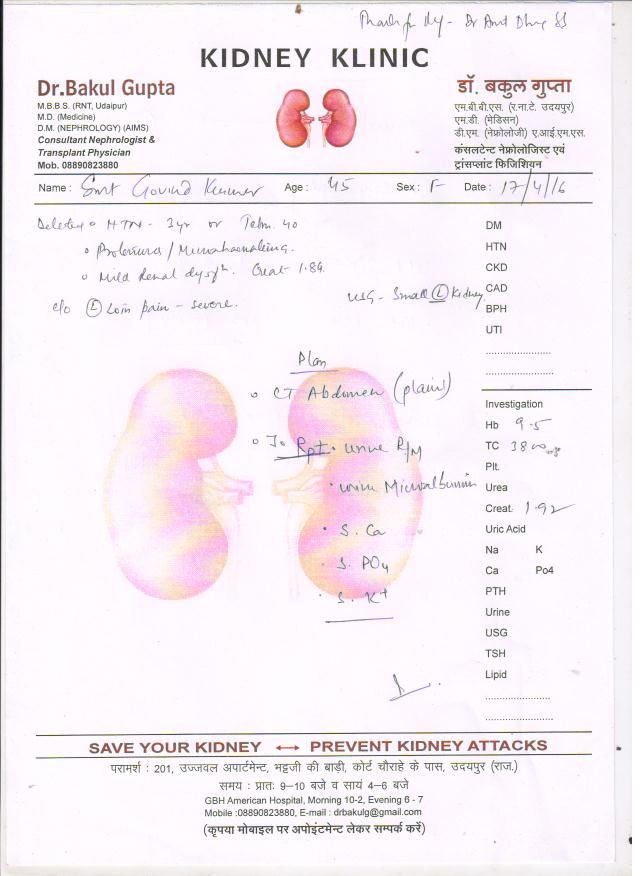 KIDNEY KLINIC
Dr.Bakul Gupta
M.B.B.S. (RNT, Udaipur)
M.D. (Medicine)
D.M. (NEPHROLOGY) (AIMS)
Consultant Nephrologist &
Transplant Physician
Mob. 08890823880
डॉ. बकुल गुप्ता
एम.बी.बी.एस. (र.ना.टे. उदयपुर)
एम.डी. (मेडिसन)
डी.एम. (नेफ्रोलोजी) ए.आई.एम.एस.
कंसलटेन्ट नेफ्रोलोजिस्ट एवं
ट्रांसप्लांट फिजिशियन
Name : Smt Govind Kumar Age : 45 Sex : F Date : 17/4/16
HTN - 3yr on Telm. 40
Mild Renal Creat - 1.84
c/o (L) Loin pain - severe.
USG - Small (L) Kidney
Plan
CT Abdomen (plain)
To Rpt. urine R/M
urine Microalbumin
S. Ca
S. PO4
S. K+
DM
HTN
CKD
CAD
BPH
UTI
.......................
.......................
Investigation
Hb 9.5
TC 3800
Plt.
Urea
Creat. 1.92
Uric Acid
Na K
Ca Po4
PTH
Urine
USG
TSH
Lipid
.......................
.......................
SAVE YOUR KIDNEY ↔ PREVENT KIDNEY ATTACKS
परामर्श : 201, उज्जवल अपार्टमेन्ट, भट्टजी की बाड़ी, कोर्ट चौराहे के पास, उदयपुर (राज.)
समय : प्रातः 9–10 बजे व सायं 4–6 बजे
GBH American Hospital, Morning 10-2, Evening 6 - 7
Mobile :08890823880, E-mail : drbakulg@gmail.com
(कृपया मोबाइल पर अपोइंटमेन्ट लेकर सम्पर्क करें)